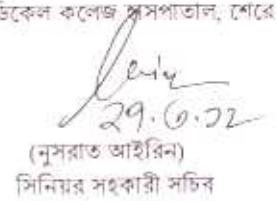 মেডিকেল কলেজ হাসপাতাল, শেরে
২৭.৬.২২
(নুসরাত আইরিন)
সিনিয়র সহকারী সচিব